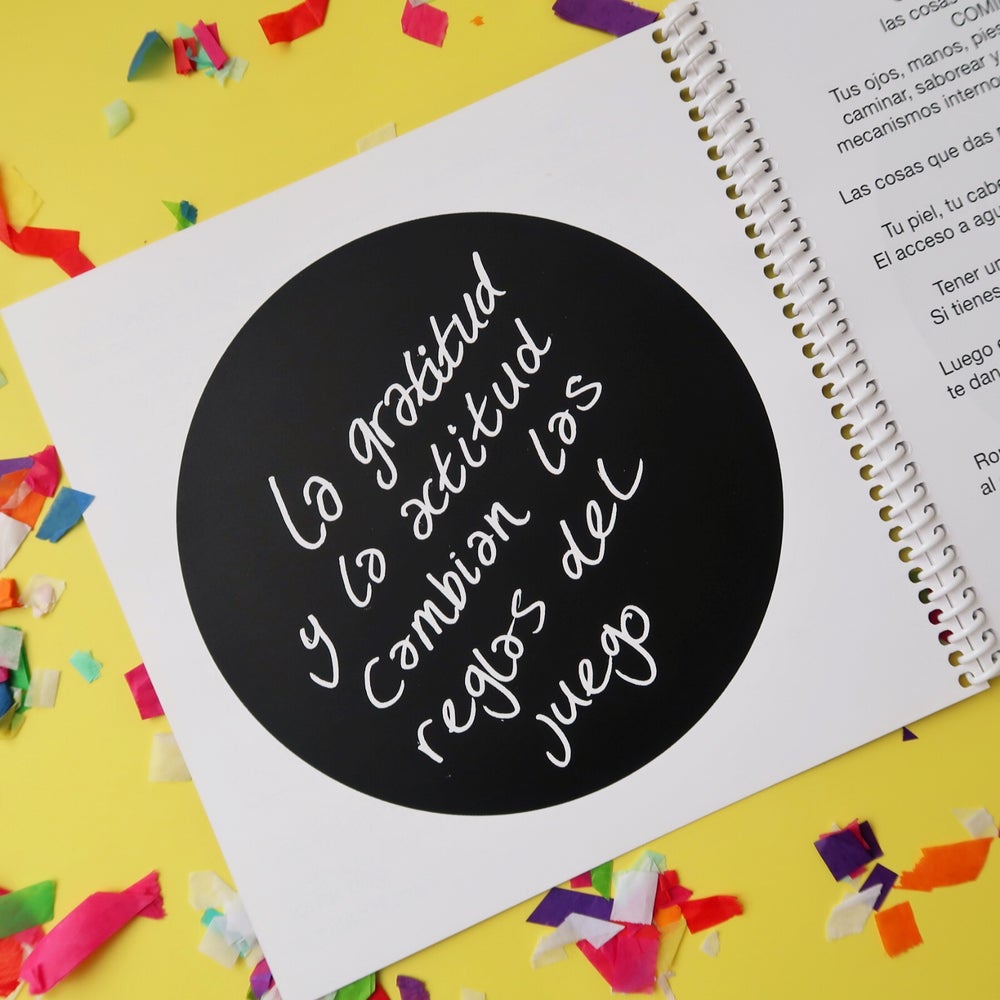 la gratitud
y la actitud
cambian las
reglas del
juego
las cosas
Tus ojos, manos, pies
caminar, saborear y
mecanismos interno
Las cosas que das
Tu piel, tu cabe
El acceso a agu
Tener un
Si tienes
Luego
te dan
al